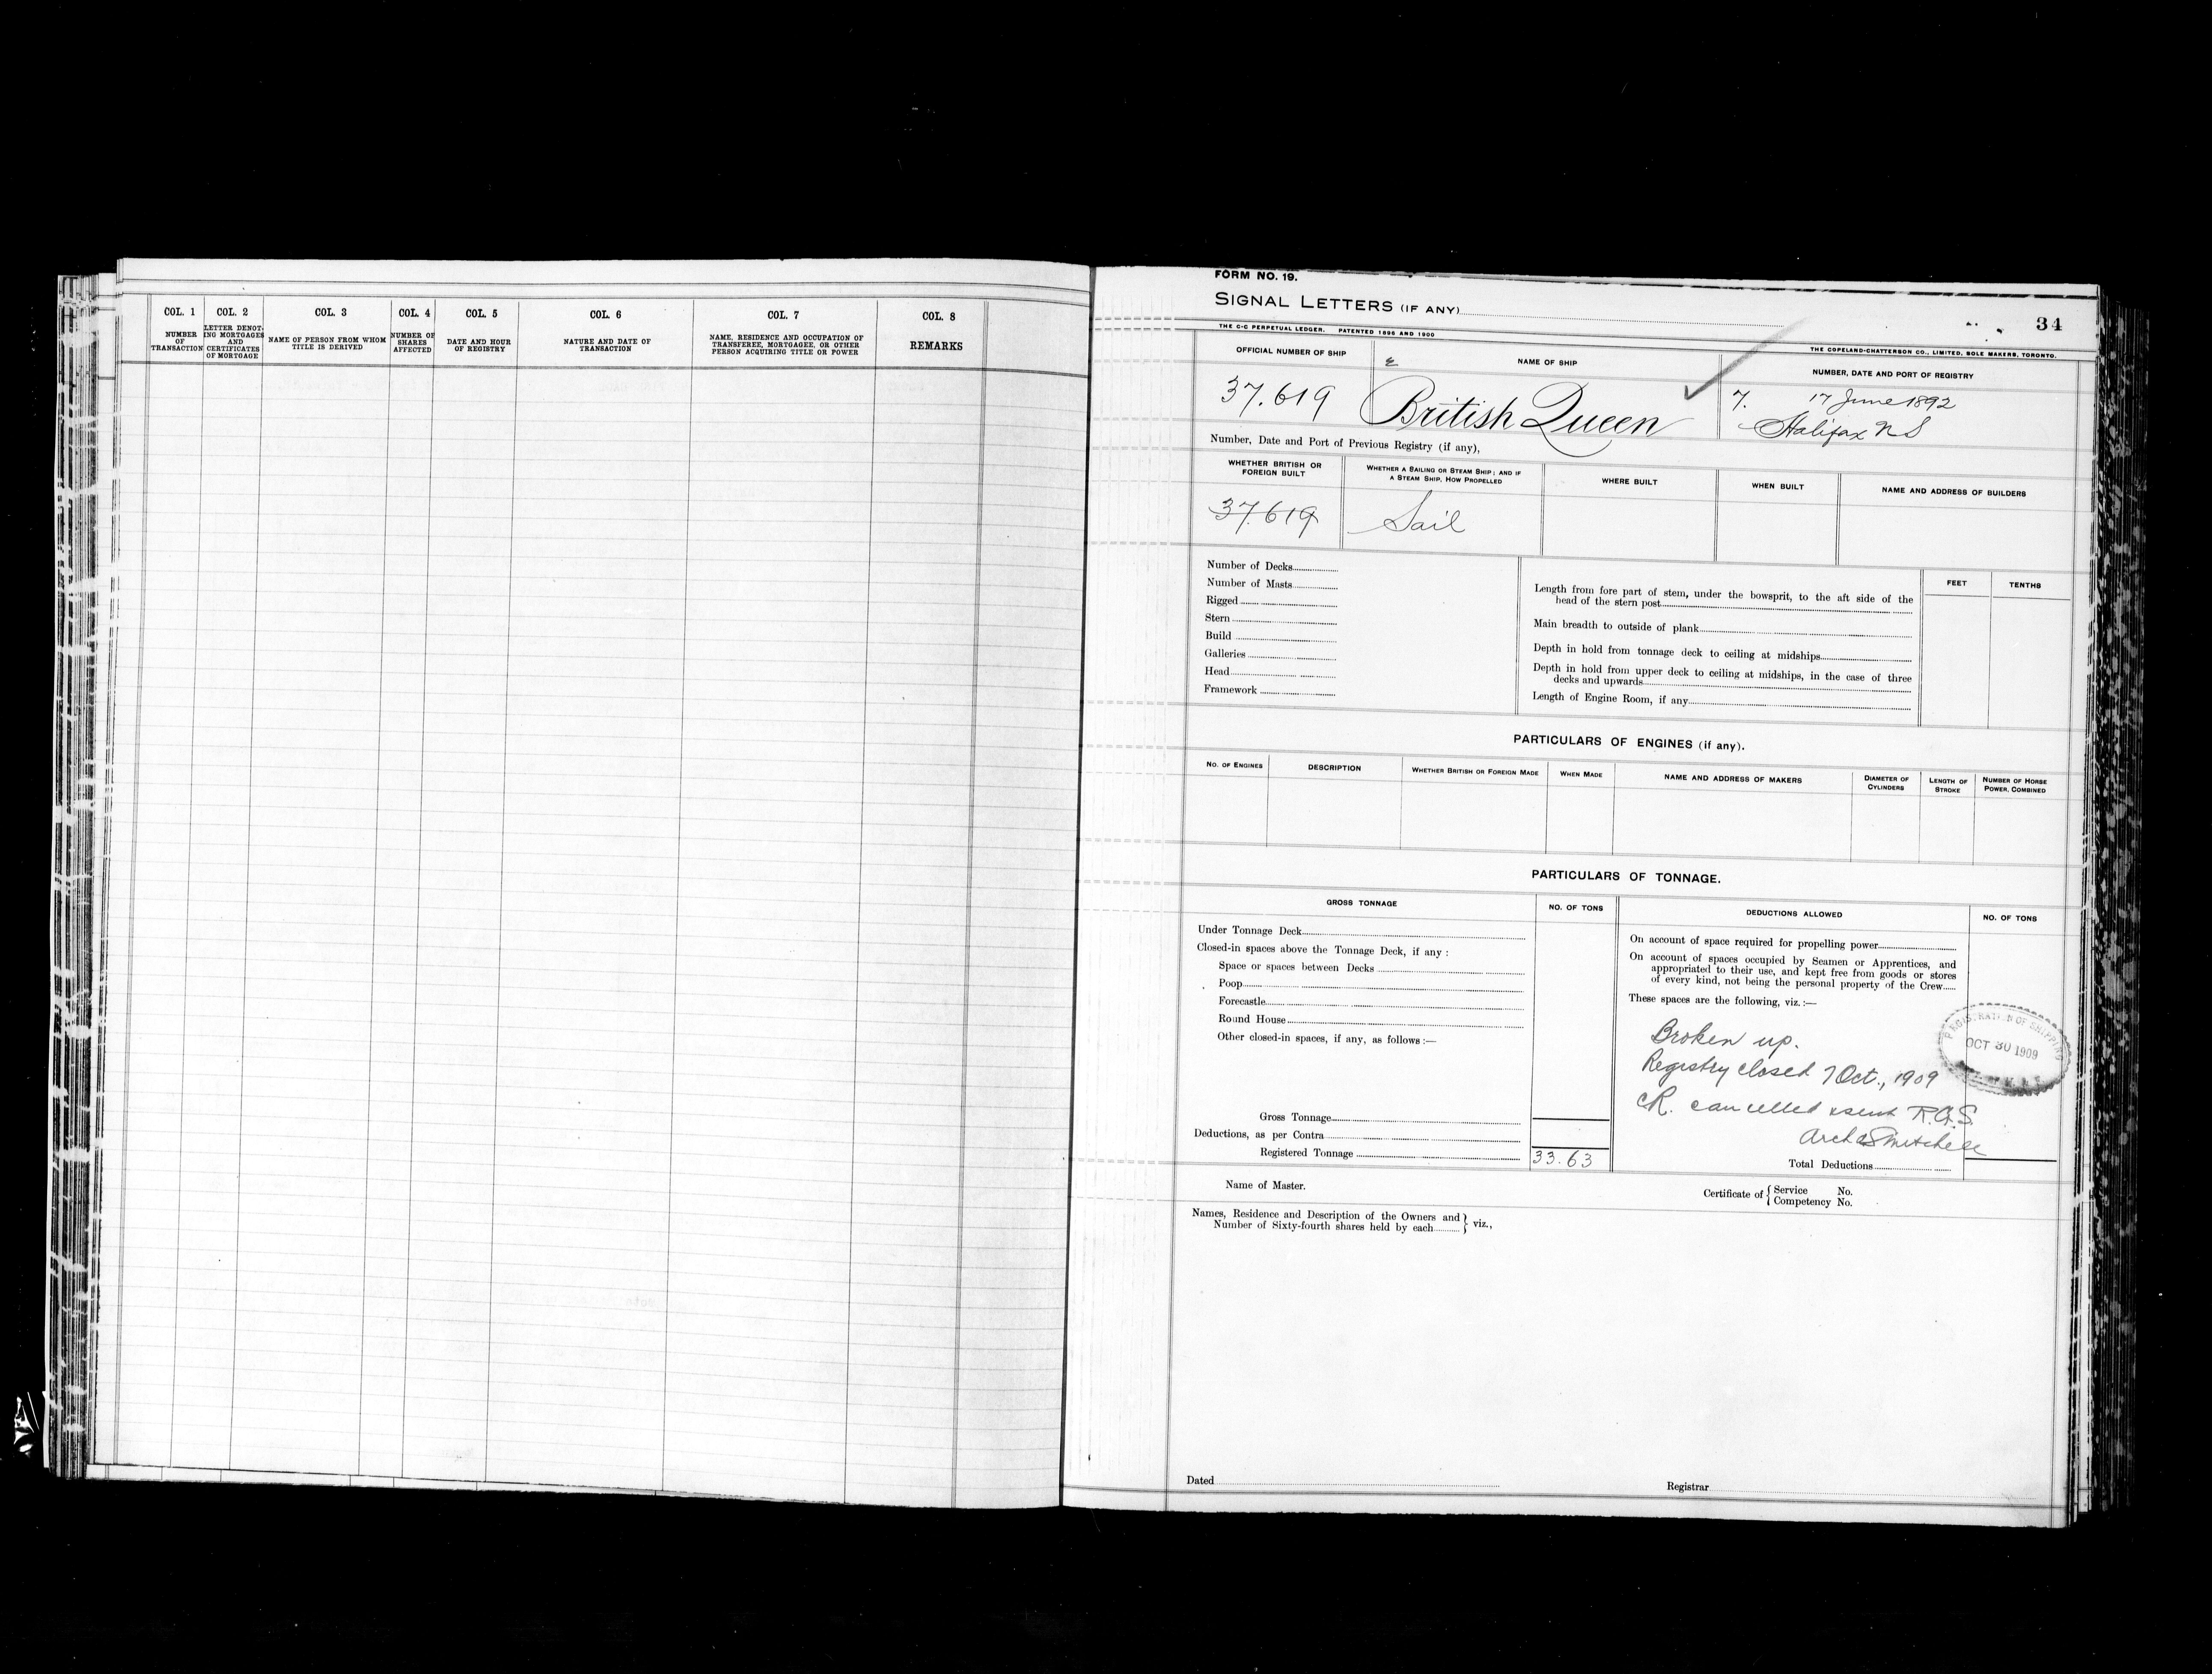 COL. 1
NUMBER
OF
TRANSACTION
COL. 2
LETTER DENOT-
ING MORTGAGES
AND
CERTIFICATES
OF MORTGAGE
COL. 3
NAME OF PERSON FROM WHOM
TITLE IS DERIVED
COL. 4
NUMBER OF
SHARES
AFFECTED
COL. 5
DATE AND HOUR
OF REGISTRY
COL. 6
NATURE AND DATE OF
TRANSACTION
COL. 7
NAME, RESIDENCE AND OCCUPATION OF
TRANSFEREE, MORTGAGEE, OR OTHER
PERSON ACQUIRING TITLE OR POWER
COL. 8
REMARKS
FORM NO. 19.
SIGNAL LETTERS (IF ANY)
34
THE C-C PERPETUAL LEDGER. PATENTED 1896 AND 1900
THE COPELAND-CHATTERSON CO., LIMITED, SOLE MAKERS, TORONTO.
OFFICIAL NUMBER OF SHIP
37.619
NAME OF SHIP
British Queen
NUMBER, DATE AND PORT OF REGISTRY
7. 17 June 1892
Halifax NS
Number, Date and Port of Previous Registry (if any),
WHETHER BRITISH OR
FOREIGN BUILT
37.619
WHETHER A SAILING OR STEAM SHIP; AND IF
A STEAM SHIP, HOW PROPELLED
Sail
WHERE BUILT
WHEN BUILT
NAME AND ADDRESS OF BUILDERS
Number of Decks
Number of Masts
Rigged
Stern
Build
Galleries
Head
Framework
FEET
TENTHS
Length from fore part of stem, under the bowsprit, to the aft side of the
head of the stern post
Main breadth to outside of plank
Depth in hold from tonnage deck to ceiling at midships
Depth in hold from upper deck to ceiling at midships, in the case of three
decks and upwards
Length of Engine Room, if any
PARTICULARS OF ENGINES (if any).
NO. OF ENGINES
DESCRIPTION
WHETHER BRITISH OR FOREIGN MADE
WHEN MADE
NAME AND ADDRESS OF MAKERS
DIAMETER OF
CYLINDERS
LENGTH OF
STROKE
NUMBER OF HORSE
POWER, COMBINED
PARTICULARS OF TONNAGE.
GROSS TONNAGE
NO. OF TONS
Under Tonnage Deck
Closed-in spaces above the Tonnage Deck, if any :
Space or spaces between Decks
Poop
Forecastle
Round House
Other closed-in spaces, if any, as follows :—
Gross Tonnage
Deductions, as per Contra
Registered Tonnage
33.63
DEDUCTIONS ALLOWED
NO. OF TONS
On account of space required for propelling power
On account of spaces occupied by Seamen or Apprentices, and
appropriated to their use, and kept free from goods or stores
of every kind, not being the personal property of the Crew
These spaces are the following, viz. :—
Broken up.
Registry closed 7 Oct., 1909
CR. cancelled & sent R.G.S.
Arch S Mitchell
REGISTRATION OF SHIPPING
OCT 30 1909
Total Deductions
Name of Master.
Certificate of { Service No.
Competency No.
Names, Residence and Description of the Owners and
Number of Sixty-fourth shares held by each } viz.,
Dated
Registrar